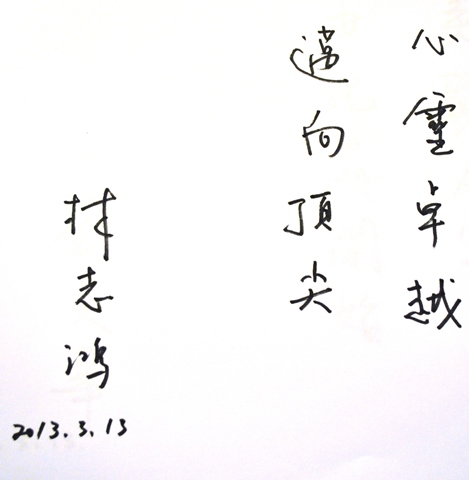 心靈卓越
邁向頂尖
林志鴻
2013.3.13